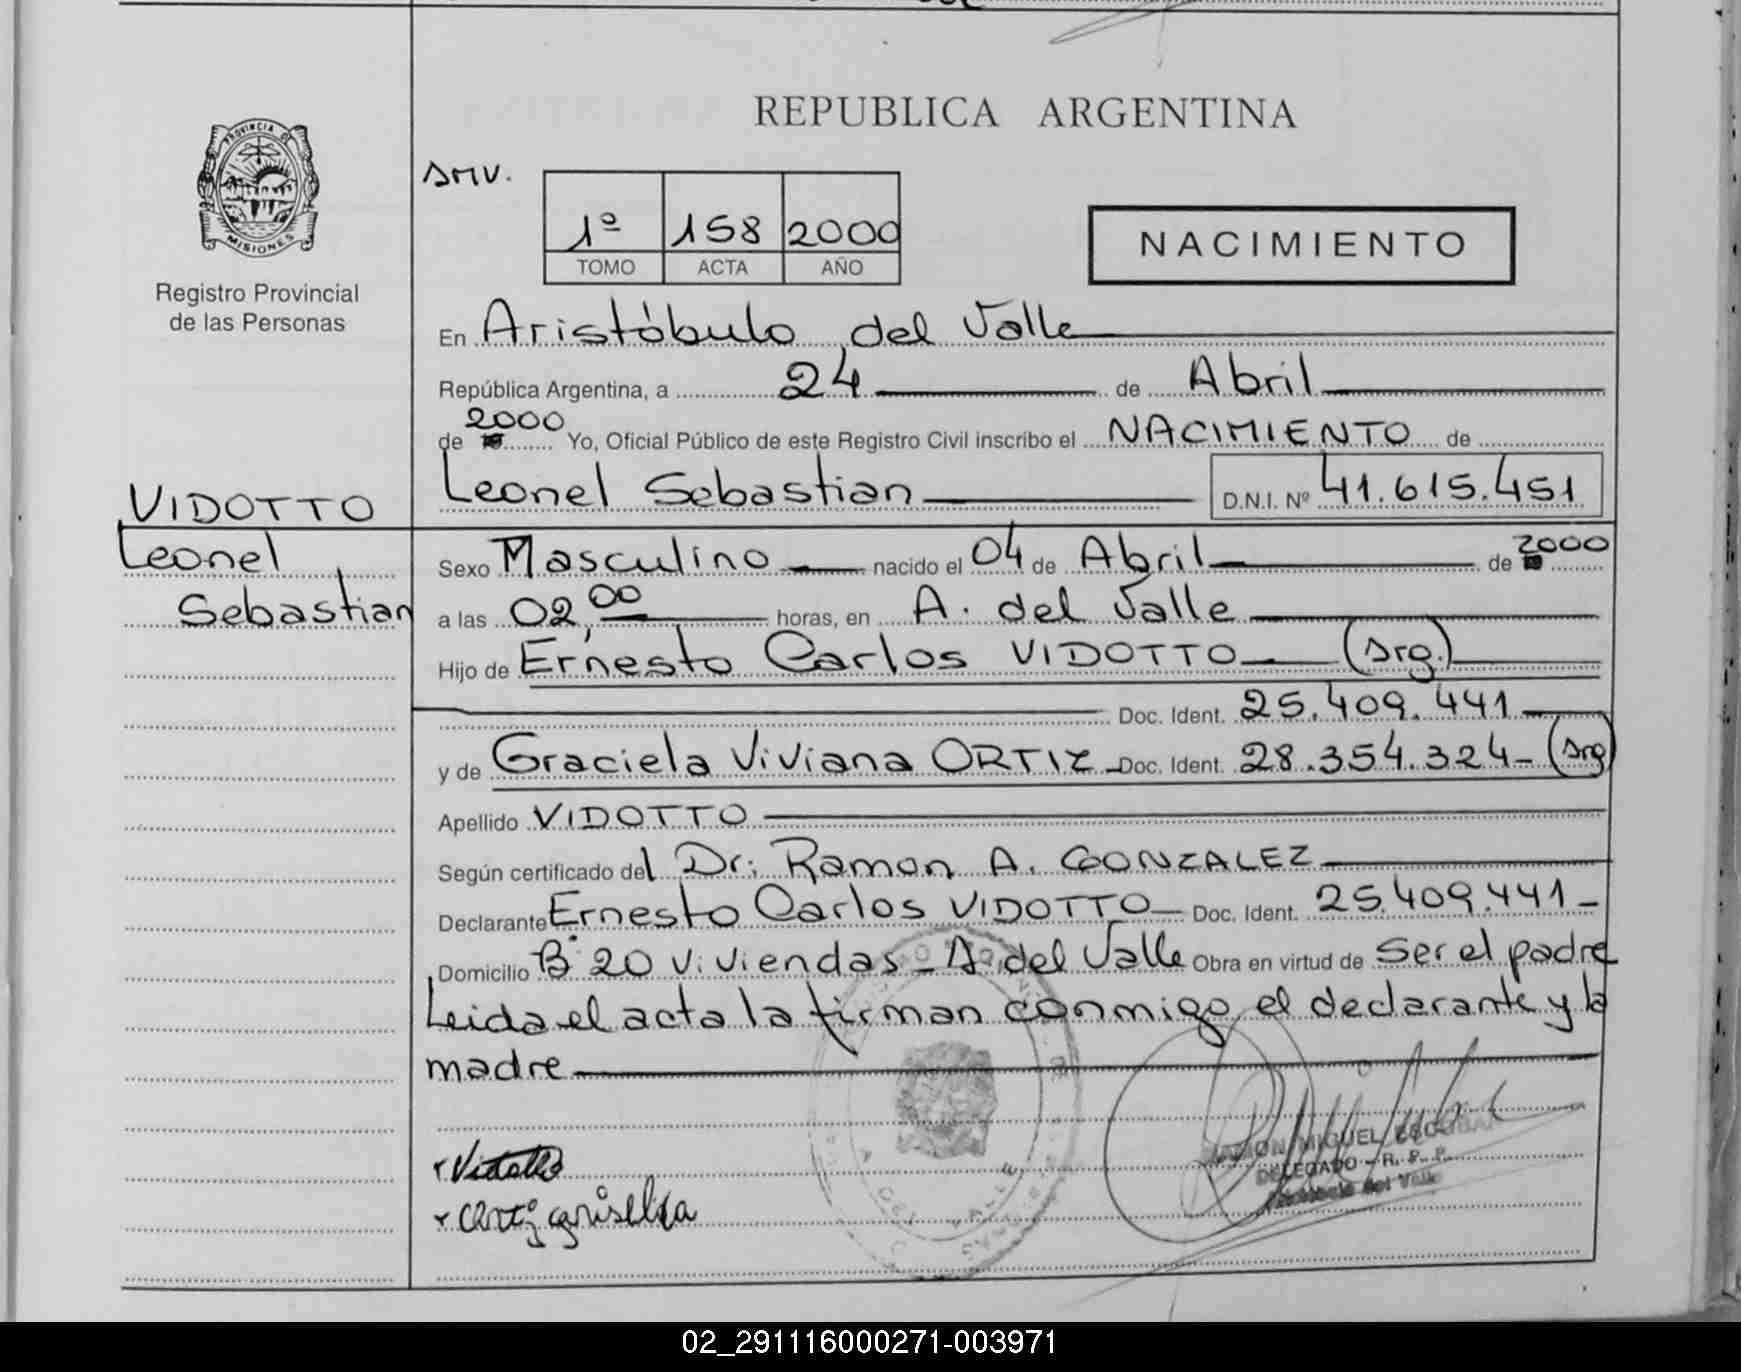 REPUBLICA ARGENTINA
PROVINCIA DE
MISIONES
Registro Provincial
de las Personas
AMV.
1º 158 2000
TOMO ACTA AÑO
NACIMIENTO
En Aristóbulo del Valle
República Argentina, a 24 de Abril
de 2000 Yo, Oficial Público de este Registro Civil inscribo el NACIMIENTO de
Leonel Sebastian D.N.I. Nº 41.615.451
VIDOTTO
Leonel
Sebastian
Sexo Masculino nacido el 04 de Abril de 2000
a las 02,00 horas, en A. del Valle
Hijo de Ernesto Carlos VIDOTTO (Arg.)
Doc. Ident. 25.409.441
y de Graciela Viviana ORTIZ Doc. Ident. 28.354.324 (Arg)
Apellido VIDOTTO
Según certificado del Dr: Ramon A. GONZALEZ
Declarante Ernesto Carlos VIDOTTO Doc. Ident. 25.409.441
Domicilio Bº 20 Viviendas - A. del Valle Obra en virtud de ser el padre
Leida el acta la firman conmigo el declarante y la
madre
Vidotto
RAMON MIGUEL ESCOBAR
DELEGADO - R. P. P.
Aristóbulo del Valle
A. DEL VALLE
02_291116000271-003971